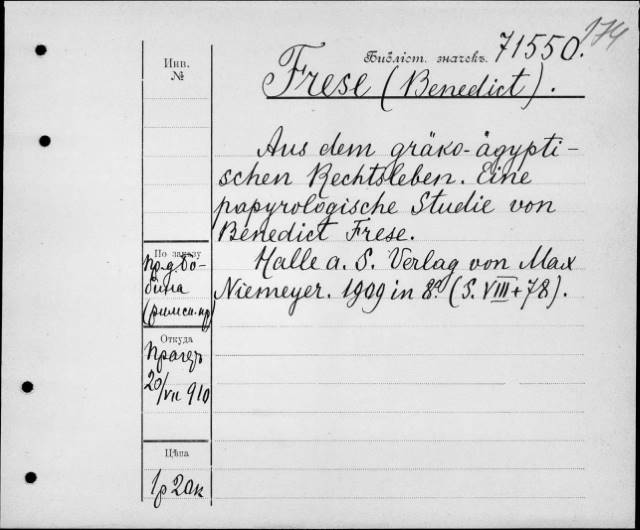 174
Инв.
№
Библіот. значекъ. 71550.
Frese (Benedict).
Aus dem gräko-ägypti-
schen Rechtsleben. Eine
papyrologische Studie von
Benedict Frese.
Halle a. S. Verlag von Max
Niemeyer. 1909 in 8º (S. VIII+78).
По заказу
бина
Откуда
20/VII 910
Цѣна
1р 20к